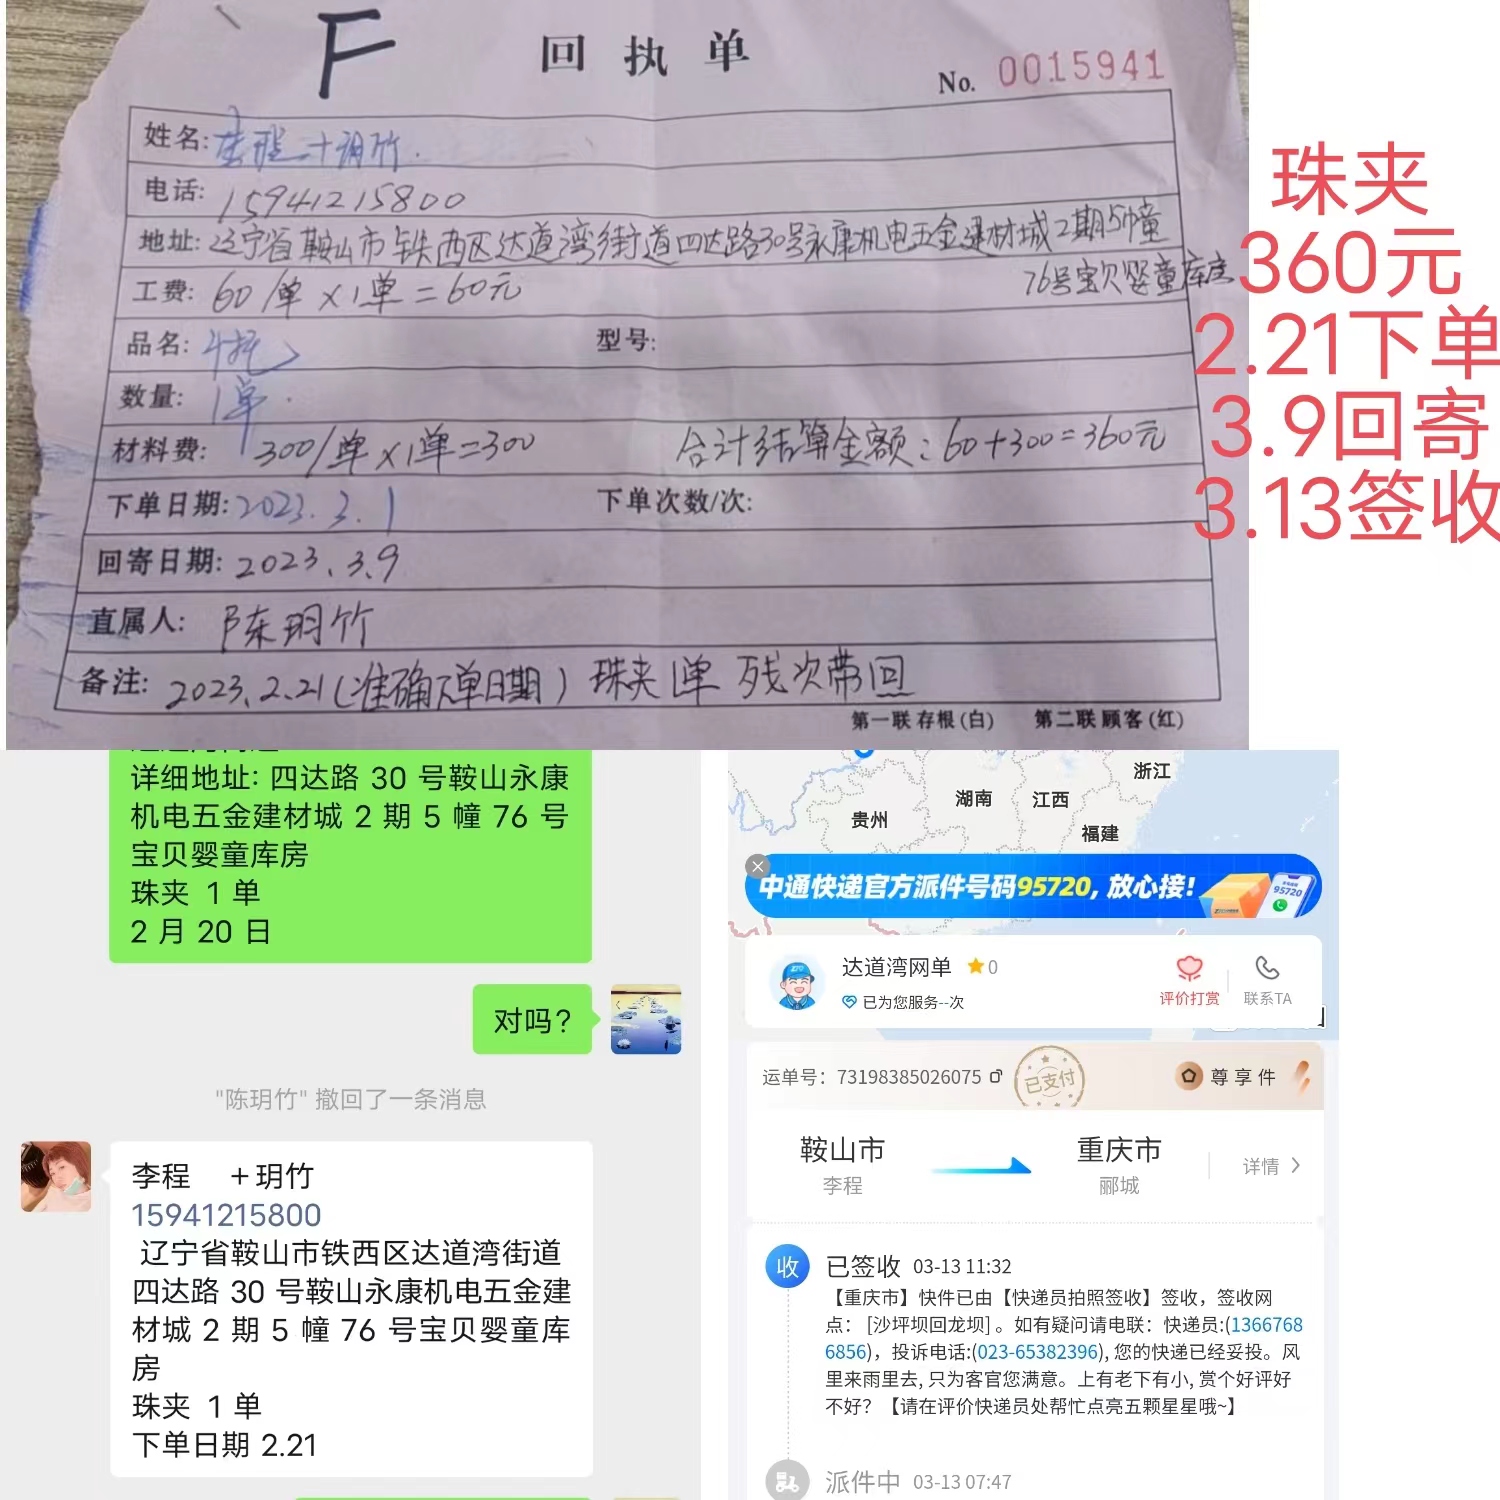 F
回执单
No. 0015941
姓名: 李程二十玥竹.
电话: 15941215800
地址: 辽宁省鞍山市铁西区达道湾街道四达路30号永康机电五金建材城2期5幢
76号宝贝婴童库房
工费: 60/单×1单=60元
品名:
型号:
数量: 1单.
材料费: 300/单×1单=300 合计结算金额: 60+300=360元
下单日期: 2023.3.1 下单次数/次:
回寄日期: 2023.3.9
直属人: 陈玥竹
备注: 2023.2.21(准确下单日期) 珠夹1单 残次带回
第一联 存根(白) 第二联 顾客(红)
珠夹
360元
2.21下单
3.9回寄
3.13签收
详细地址: 四达路 30 号鞍山永康
机电五金建材城 2 期 5 幢 76 号
宝贝婴童库房
珠夹 1 单
2 月 20 日
对吗?
"陈玥竹" 撤回了一条消息
李程 +玥竹
15941215800
辽宁省鞍山市铁西区达道湾街道
四达路 30 号鞍山永康机电五金建
材城 2 期 5 幢 76 号宝贝婴童库
房
珠夹 1 单
下单日期 2.21
浙江
湖南
江西
贵州
福建
中通快递官方派件号码95720, 放心接!
95720
达道湾网单 0
已为您服务--次
评价打赏
联系TA
运单号: 73198385026075
已支付
尊享件
鞍山市
重庆市
李程
郦城
详情
收
已签收 03-13 11:32
【重庆市】快件已由【快递员拍照签收】签收，签收网
点： [沙坪坝回龙坝] 。如有疑问请电联：快递员:(1366768
6856)，投诉电话:(023-65382396), 您的快递已经妥投。风
里来雨里去, 只为客官您满意。上有老下有小, 赏个好评好
不好？【请在评价快递员处帮忙点亮五颗星星哦~】
派件中 03-13 07:47